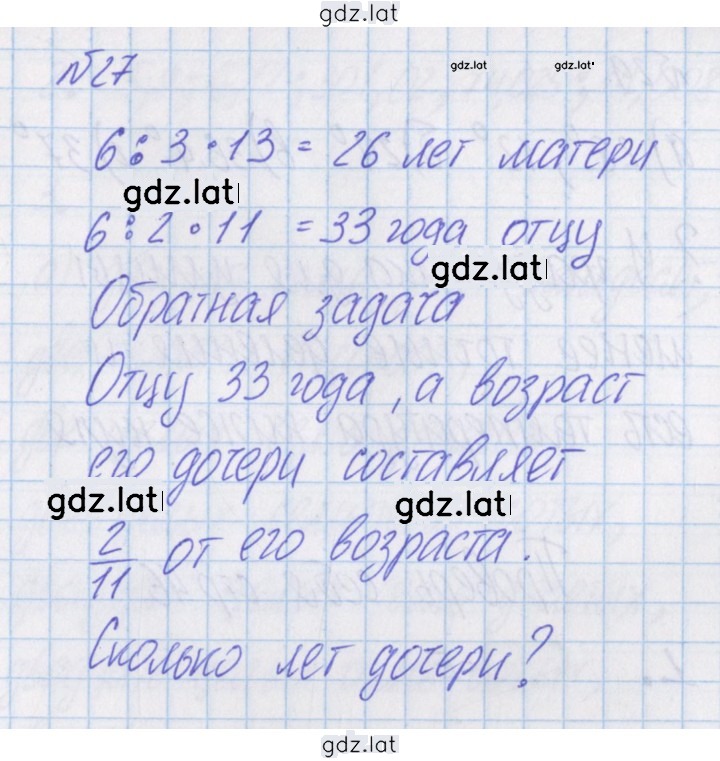 gdz.lat
№27
gdz.lat gdz.lat
6 : 3 · 13 = 26 лет матери
gdz.lat
6 : 2 · 11 = 33 года отцу
gdz.lat
Обратная задача
Отцу 33 года, а возраст
его дочери составляет
gdz.lat gdz.lat
2/11 от его возраста.
Сколько лет дочери?
gdz.lat